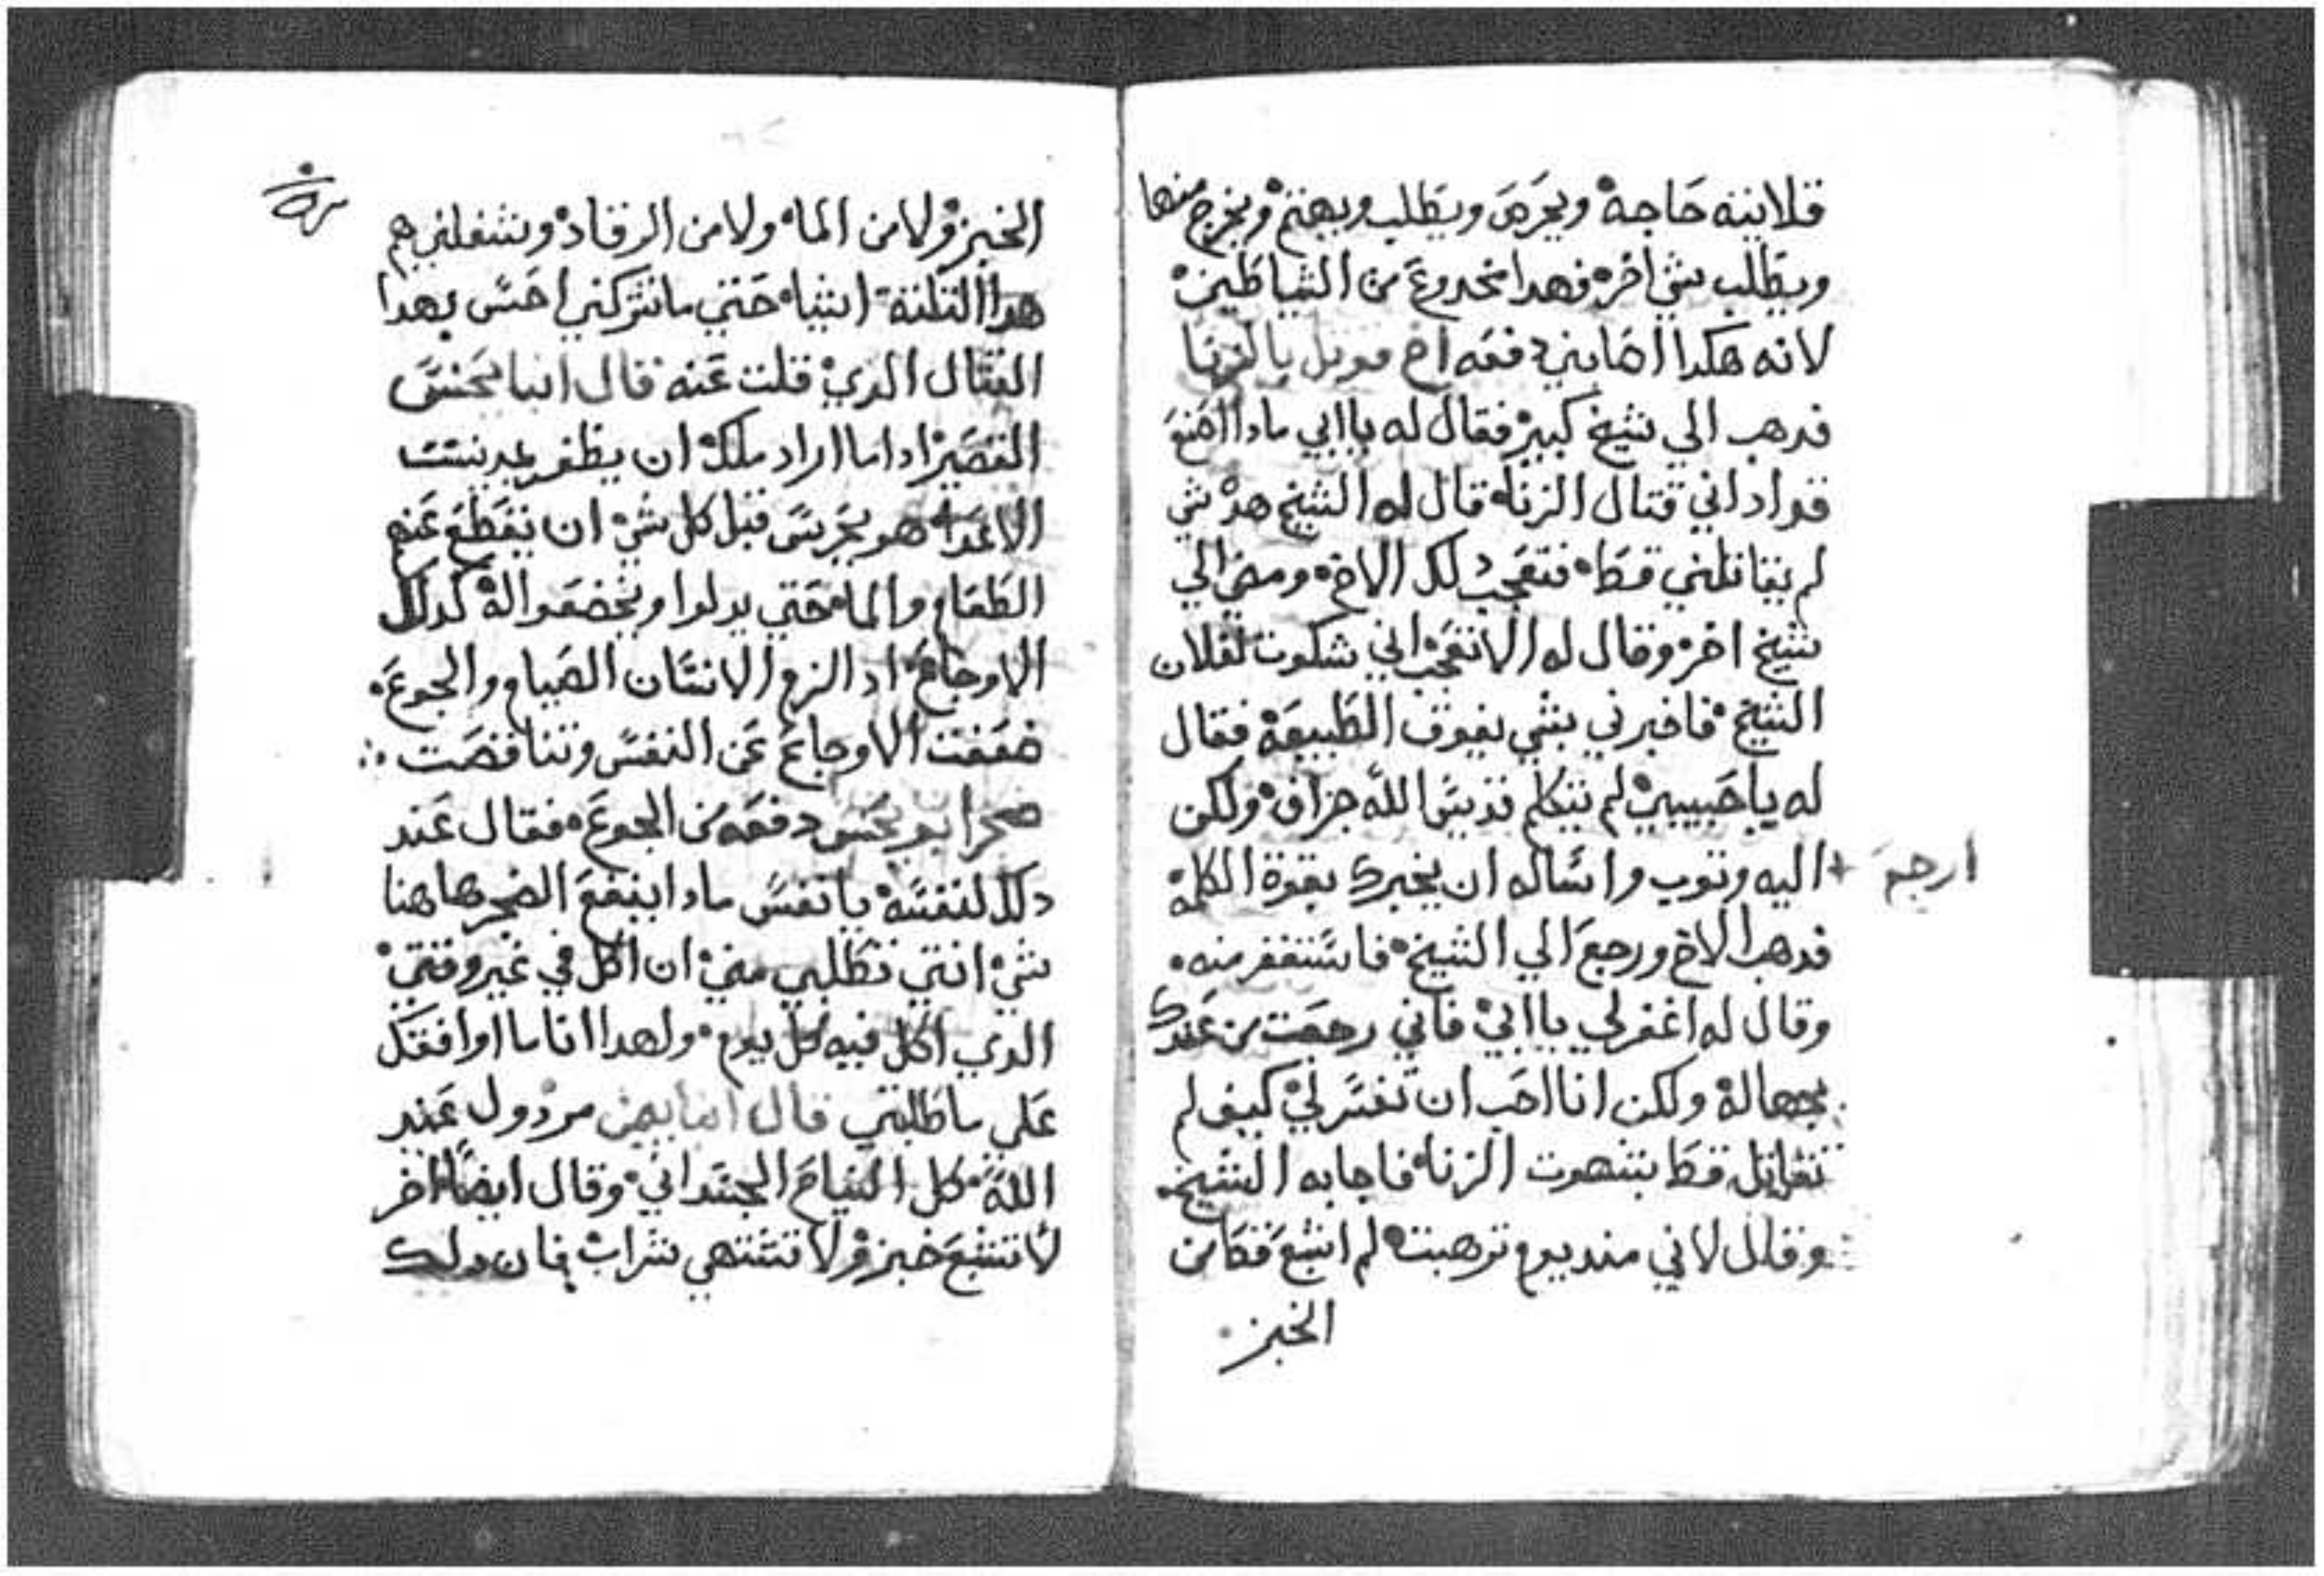 قلايته حاجة ويحرص ويطلب ويهتم ويخرج منها
ويطلب شي اخر فهدا مخدوع من الشياطين
لانه هكدا اصابني دفعه اخ قوتل بالزنا
فدهب الي شيخ كبير فقال له يا ابي مادا اصنع
فواداني قتال الزناه قال له الشيخ هدا شي
لم يقاتلني قط فتعجب دلك الاخ ومضي الي
شيخ اخر وقال له الا تتعجب اني شكوت لفلان
الشيخ فاخبرني بشي يفوق الطبيعة فقال
له يا حبيبي لم يتكلم قديس الله جزاف ولكن
ارجع
اليه وتوب واساله ان يخبرك بقوة الكلمة
فدهب الاخ ورجع الي الشيخ فاستغفر منه
وقال له اغفر لي يا ابي فاني رجعت من عندك
بجهالة ولكن انا احب ان تفسر لي كيف لم
تقاتل قط بشهوت الزناه فاجابه الشيخ
وقال لاني منديوم ترهبت لم اشبع قط من
الخبز
الخبز ولا من الماء ولا من الرقاد وتشغلني هم
هدا التلتة اشياء حتي ما تتركني احس بهدا
القتال الدي قلت عنه قال انبا يحنس
القصير ادا ما اراد ملك ان يظفر بمدينت
الاعداء هو يحرس قبل كل شي ان يقطع عنهم
الطعام والماء حتي يدلوا ويخضعوا له كدلك
الاوجاع اد الزم الانسان الصيام والجوع
ضعفت الاوجاع عن النفس وتناقصت
ضجر ابو يحنس دفعه من الجوع فقال عند
دلك لنفسه يا نفس مادا ينفع الضجر هاهنا
شي انتي تطلبي مني ان اكل في غير وقتي
الدي اكل فيه كل يوم ولهدا انا ما اوافقك
علي ما طلبتي قال انبا بيمن مردول عند
الله كل النياح الجسداني وقال ايضا اخر
لا تشبع خبز ولا تشتهي شراب فان دلك